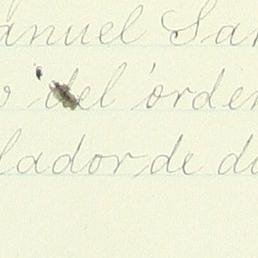 anuel San
o del órden
lador de do